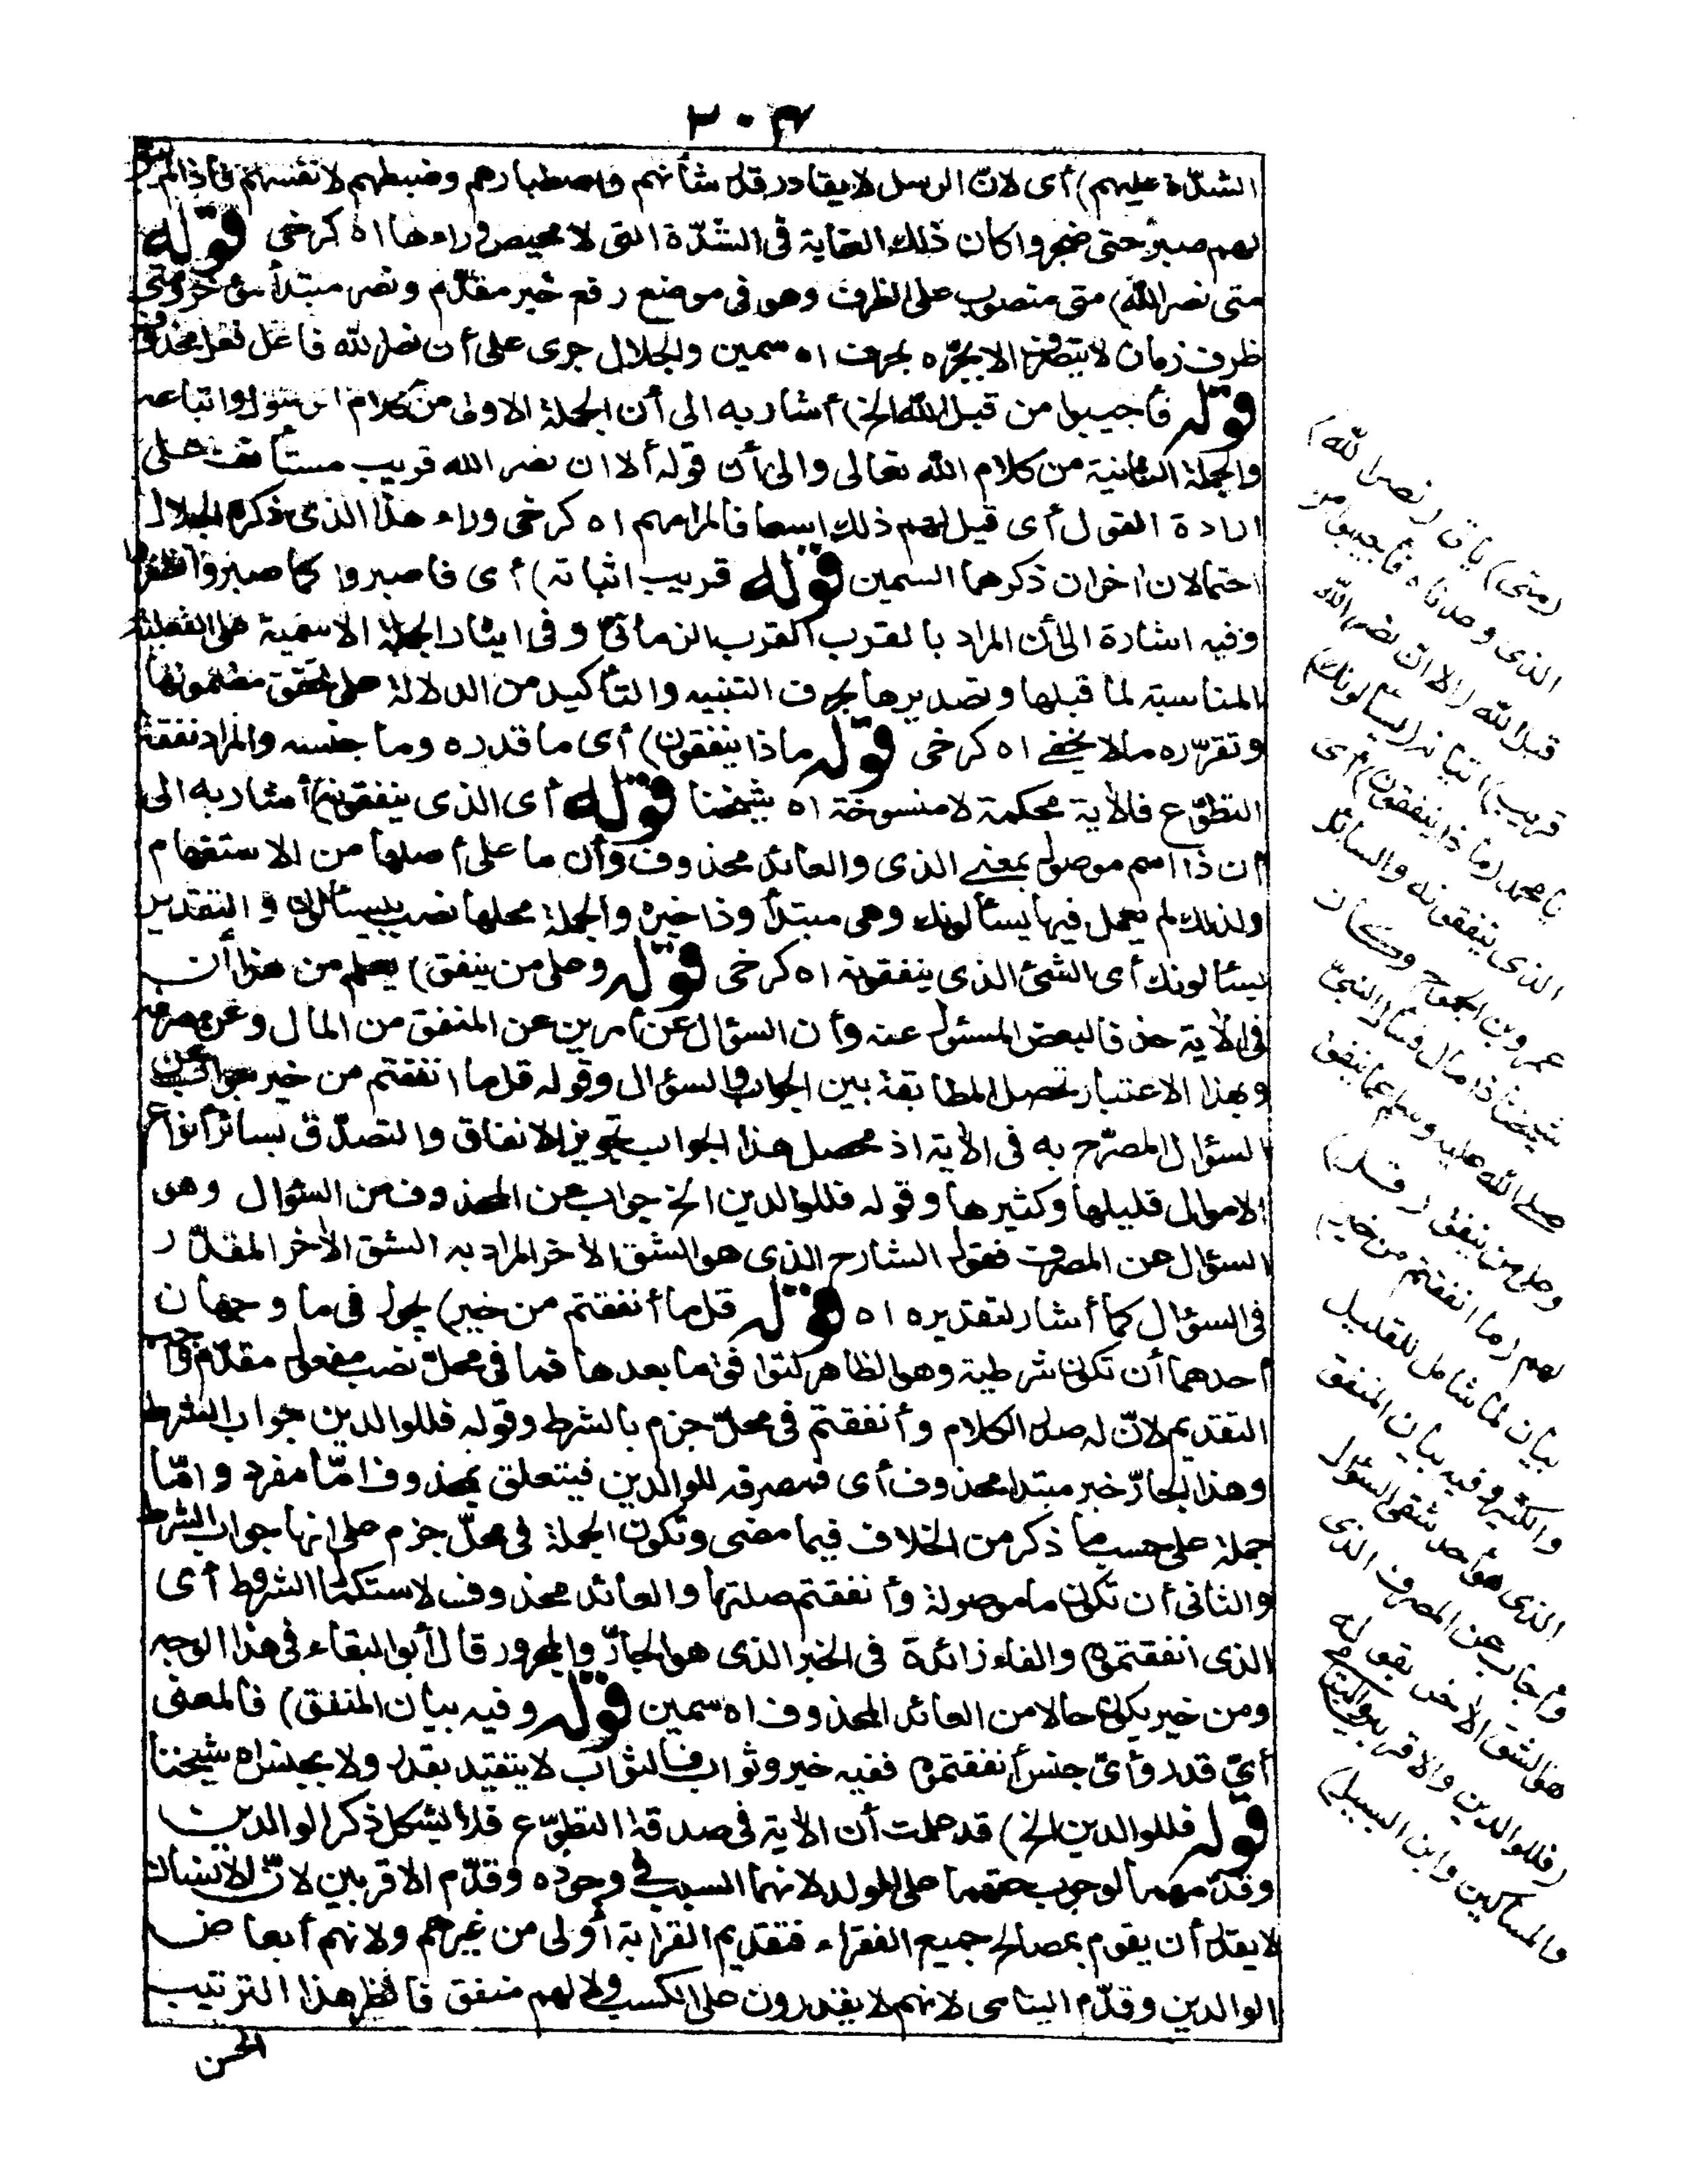 ٢٠٤
الشدّة عليهم) أى لانّ الرسل لا يقادر قدر شأنهم واصطبارهم وضبطهم لانفسهم فاذا لم يبق
لهم صبر حتى ضجروا كان ذلك الغاية فى الشدّة التى لا محيص وراءها اه كرخى قوله
متى نصر الله) متى منصوب على الظرف وهو فى موضع رفع خبر مقدّم ونصر مبتدأ مؤخر ومتى
ظرف زمان لا يتصرف الا بجرّه بحرف اه سمين والجلال جرى على أن نصر الله فاعل لفعل محذوف
قوله فأجيبوا من قبل الله الخ) أشار به الى أن الجملة الاولى من كلام الرسول واتباعه
والجملة الثانية من كلام الله تعالى والى أن قوله ألا ان نصر الله قريب مستأنف على
ارادة القول أى قيل لهم ذلك اسعافا لمرامهم اه كرخى وراء هذا الذى ذكره الجلال
احتمالان اخران ذكرهما السمين قوله قريب اتيانه) أى فاصبروا كما صبروا تظفروا
وفيه اشارة الى أن المراد بالقرب القرب الزمانىّ وفى ايثار الجملة الاسمية على الفعلية
المناسبة لما قبلها وتصديرها بحرف التنبيه والتأكيد من الدلالة على تحقق مضمونها
وتقرّره ما لا يخفى اه كرخى قوله ماذا ينفقون) أى ما قدره وما جنسه والمراد نفقة
التطوّع فالأية محكمة لا منسوخة اه شيخنا قوله أى الذى ينفقونه) أشار به الى
أن ذا اسم موصول بمعنى الذى والعائد محذوف وأن ما على أصلها من الاستفهام
ولذلك لم يعمل فيها يسألونك وهى مبتدأ وذا خبره والجملة محلها نصب بيسألون والتقدير
يسئالونك أى الشئ الذى ينفقونه اه كرخى قوله وعلى من ينفق) يعلم من هذا أن
فى الأية حذفا لبعض المسئول عنه وأن السؤال عن أمرين عن المنفق من المال وعن مصرفه
وبهذا الاعتبار تحصل المطابقة بين الجواب والسؤال وقوله قل ما انفقتم من خير جواب عن
السؤال المصرّح به فى الأية اذ محصل هذا الجواب تجويز الانفاق والتصدّق بسائر أنواع
الاموال قليلها وكثيرها وقوله فللوالدين الخ جواب عن المحذوف من السؤال وهو
السؤال عن المصرف فقول الشارح الذى هو الشق الأخر المراد به الشق الأخر المقدّر
فى السؤال كما أشار لتقديره اه قوله قل ما أنفقتم من خير) يجوز فى ما وجهان
أحدهما أن تكون شرطية وهو الظاهر لتوافق ما بعدها فما فى محلّ نصب مفعول مقدّم واجب
التقديم لانّ له صدر الكلام وأنفقتم فى محلّ جزم بالشرط وقوله فللوالدين جواب الشرط
وهذا الجارّ خبر مبتدا محذوف أى فمصرفه للوالدين فيتعلق بمحذوف امّا مفرد وامّا
جملة على حسب ما ذكر من الخلاف فيما مضى وتكون الجملة فى محلّ جزم على انها جواب الشرط
والثانى أن تكون ما موصولة وأنفقتم صلتها والعائد محذوف لاستكمال الشروط أى
الذى انفقتموه والفاء زائدة فى الخبر الذى هو الجارّ والمجرور قال أبو البقاء فى هذا الوجه
ومن خير يكون حالا من العائد المحذوف اه سمين قوله وفيه بيان المنفق) فالمعنى
أىّ قدر وأىّ جنس أنفقتموه ففيه خير وثواب فالثواب لا يتقيد بقدر ولا بجنس اه شيخنا
قوله فللوالدين الخ) قد علمت أن الأية فى صدقة التطوّع فلا يشكل ذكر الوالدين
وقدّمهما لوجوب حقهما على الولد لانهما السبب فى وجوده وقدّم الاقربين لانّ الانسان
لا يقدر أن يقوم بمصالح جميع الفقراء فتقديم القرابة أولى من غيرهم ولانهم أبعاض
الوالدين وقدّم اليتامى لانهم لا يقدرون على الكسب ولا لهم منفق فانظر هذا الترتيب
الحسن
(متى) يأتى (نصر الله)
الذى وعدناه فأجيبوا من
قبل الله (الا ان نصر الله
قريب) اتيانه (يسألونك)
يا محمد (ماذا ينفقون) أى
الذى ينفقونه والسائل
عمرو بن الجموح وكان
شيخا ذا مال فسأل النبىّ
صلى الله عليه وسلم عما ينفق
وعلى من ينفق (قل)
لهم (ما انفقتم من خير)
بيان لما شامل للقليل
والكثير وفيه بيان المنفق
الذى هو أحد شقى السؤال
وأجاب عن المصرف الذى
هو الشق الأخر بقوله
(فللوالدين والاقربين واليتامى
والمساكين وابن السبيل)